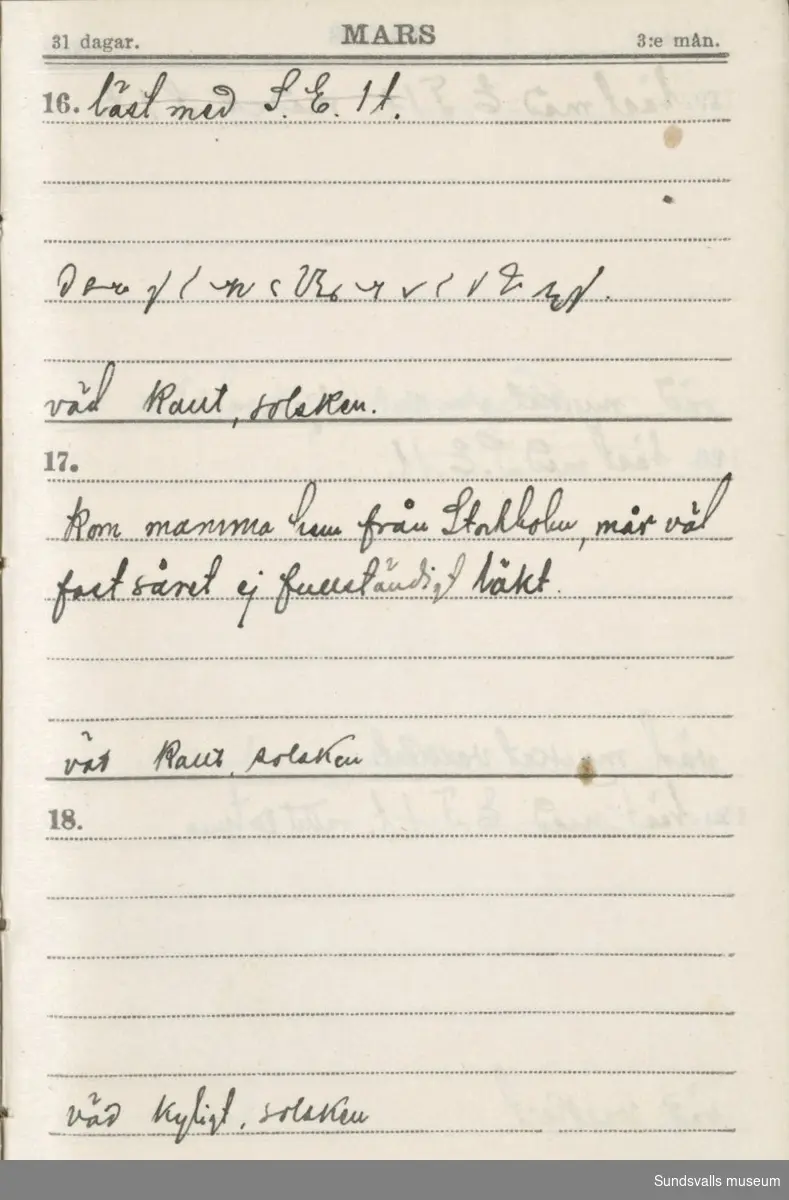 31 dagar. MARS 3:e mån.
16. läst med S. E. 1 t.
väd Kallt, solsken.
17.
Kom mamma hem från Stockholm, mår väl
fast såret ej fullständigt läkt.
väd Kallt, solsken
18.
väd Kyligt, solsken
Sundsvalls museum